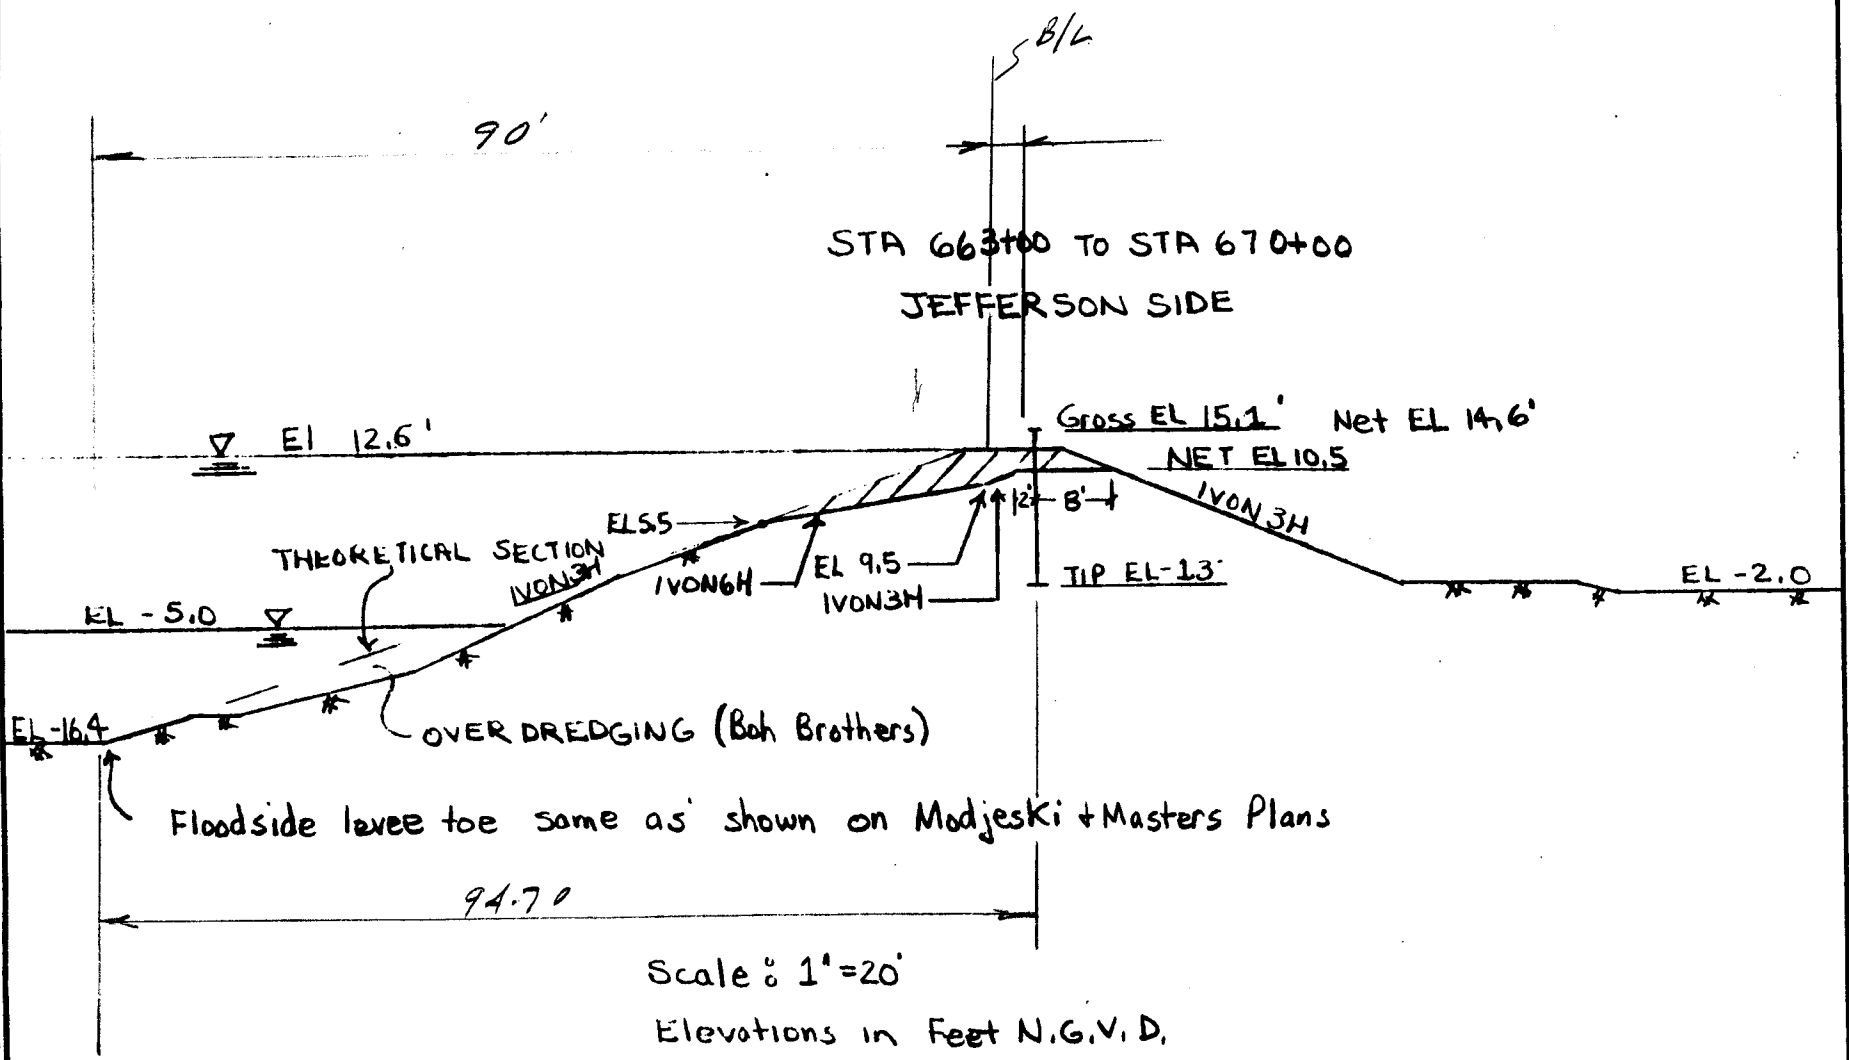 B/L
90'
STA 663+00 TO STA 670+00
JEFFERSON SIDE
Gross EL 15.1' Net EL 14.6'
El 12.6'
NET EL 10.5
12' 8'
1VON3H
EL 5.5
THEORETICAL SECTION
1VON3H
1VON6H
EL 9.5
1VON3H
TIP EL-13
EL -2.0
EL -5.0
EL-16.4
OVER DREDGING (Boh Brothers)
Floodside levee toe same as shown on Modjeski + Masters Plans
94.70
Scale: 1"=20'
Elevations in Feet N.G.V.D.